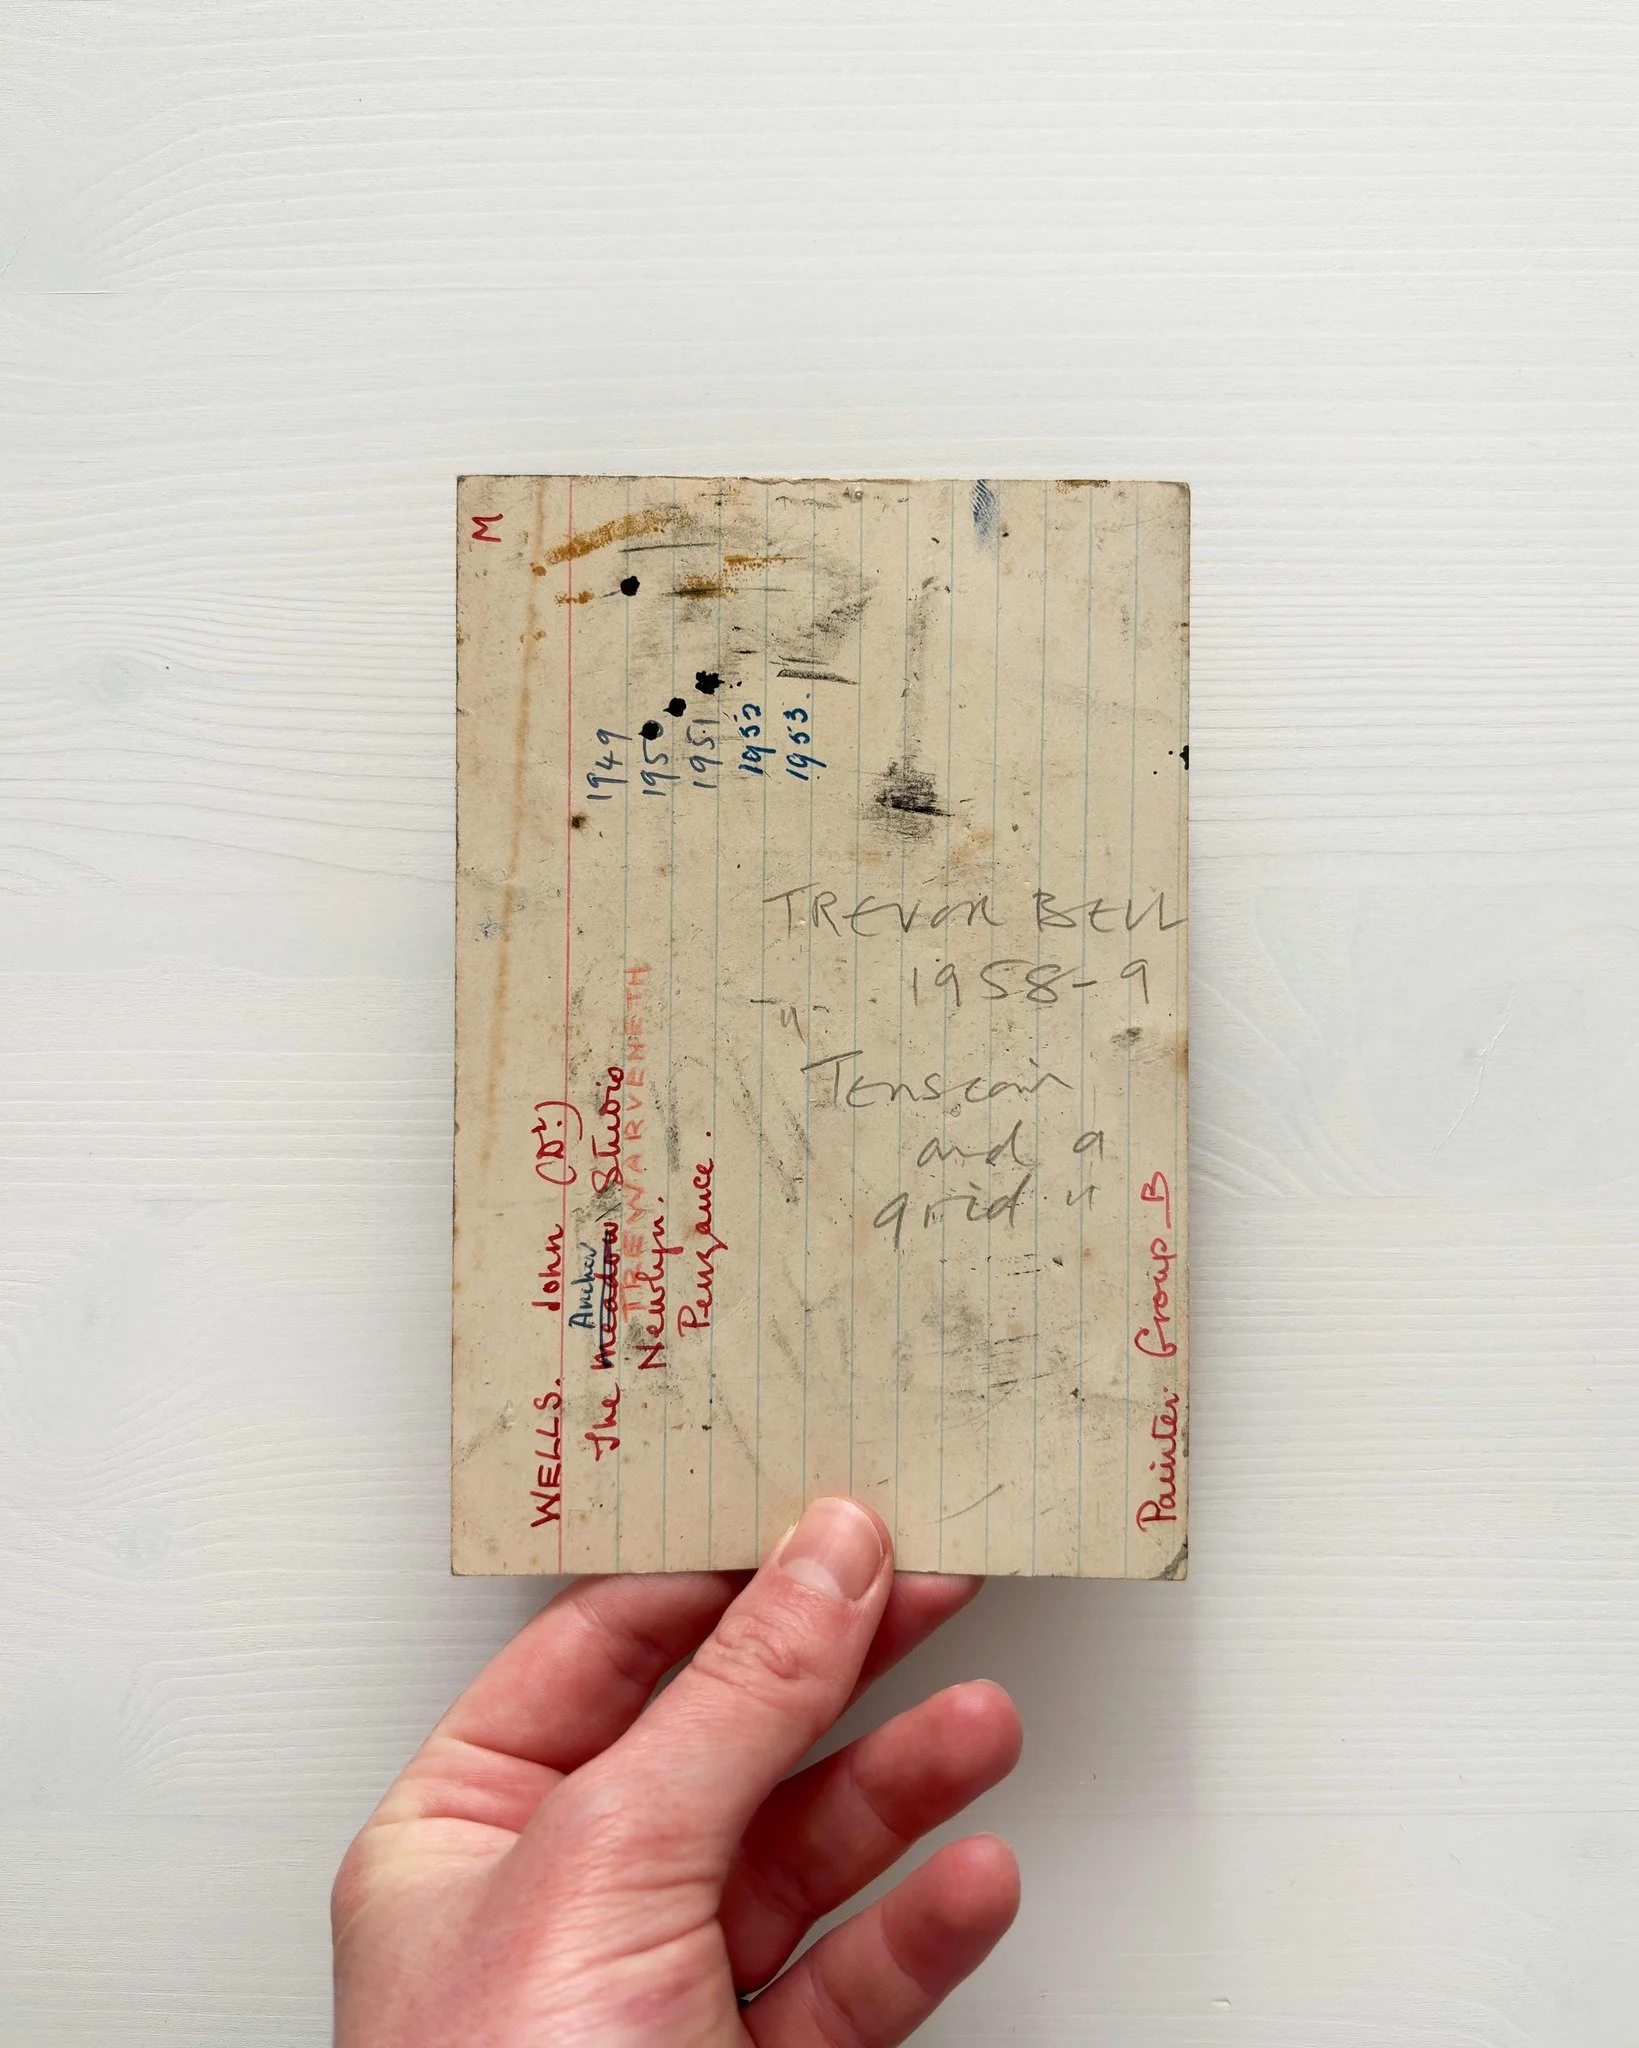 M
WELLS. John (Dr.)
Anchor
The Meadow Studio
TREWARVENETH
Newlyn.
Penzance.
1949
1950
1951
1952
1953.
Painter Group B
TREVOR BELL
1958-9
"
Tension
and a
grid"